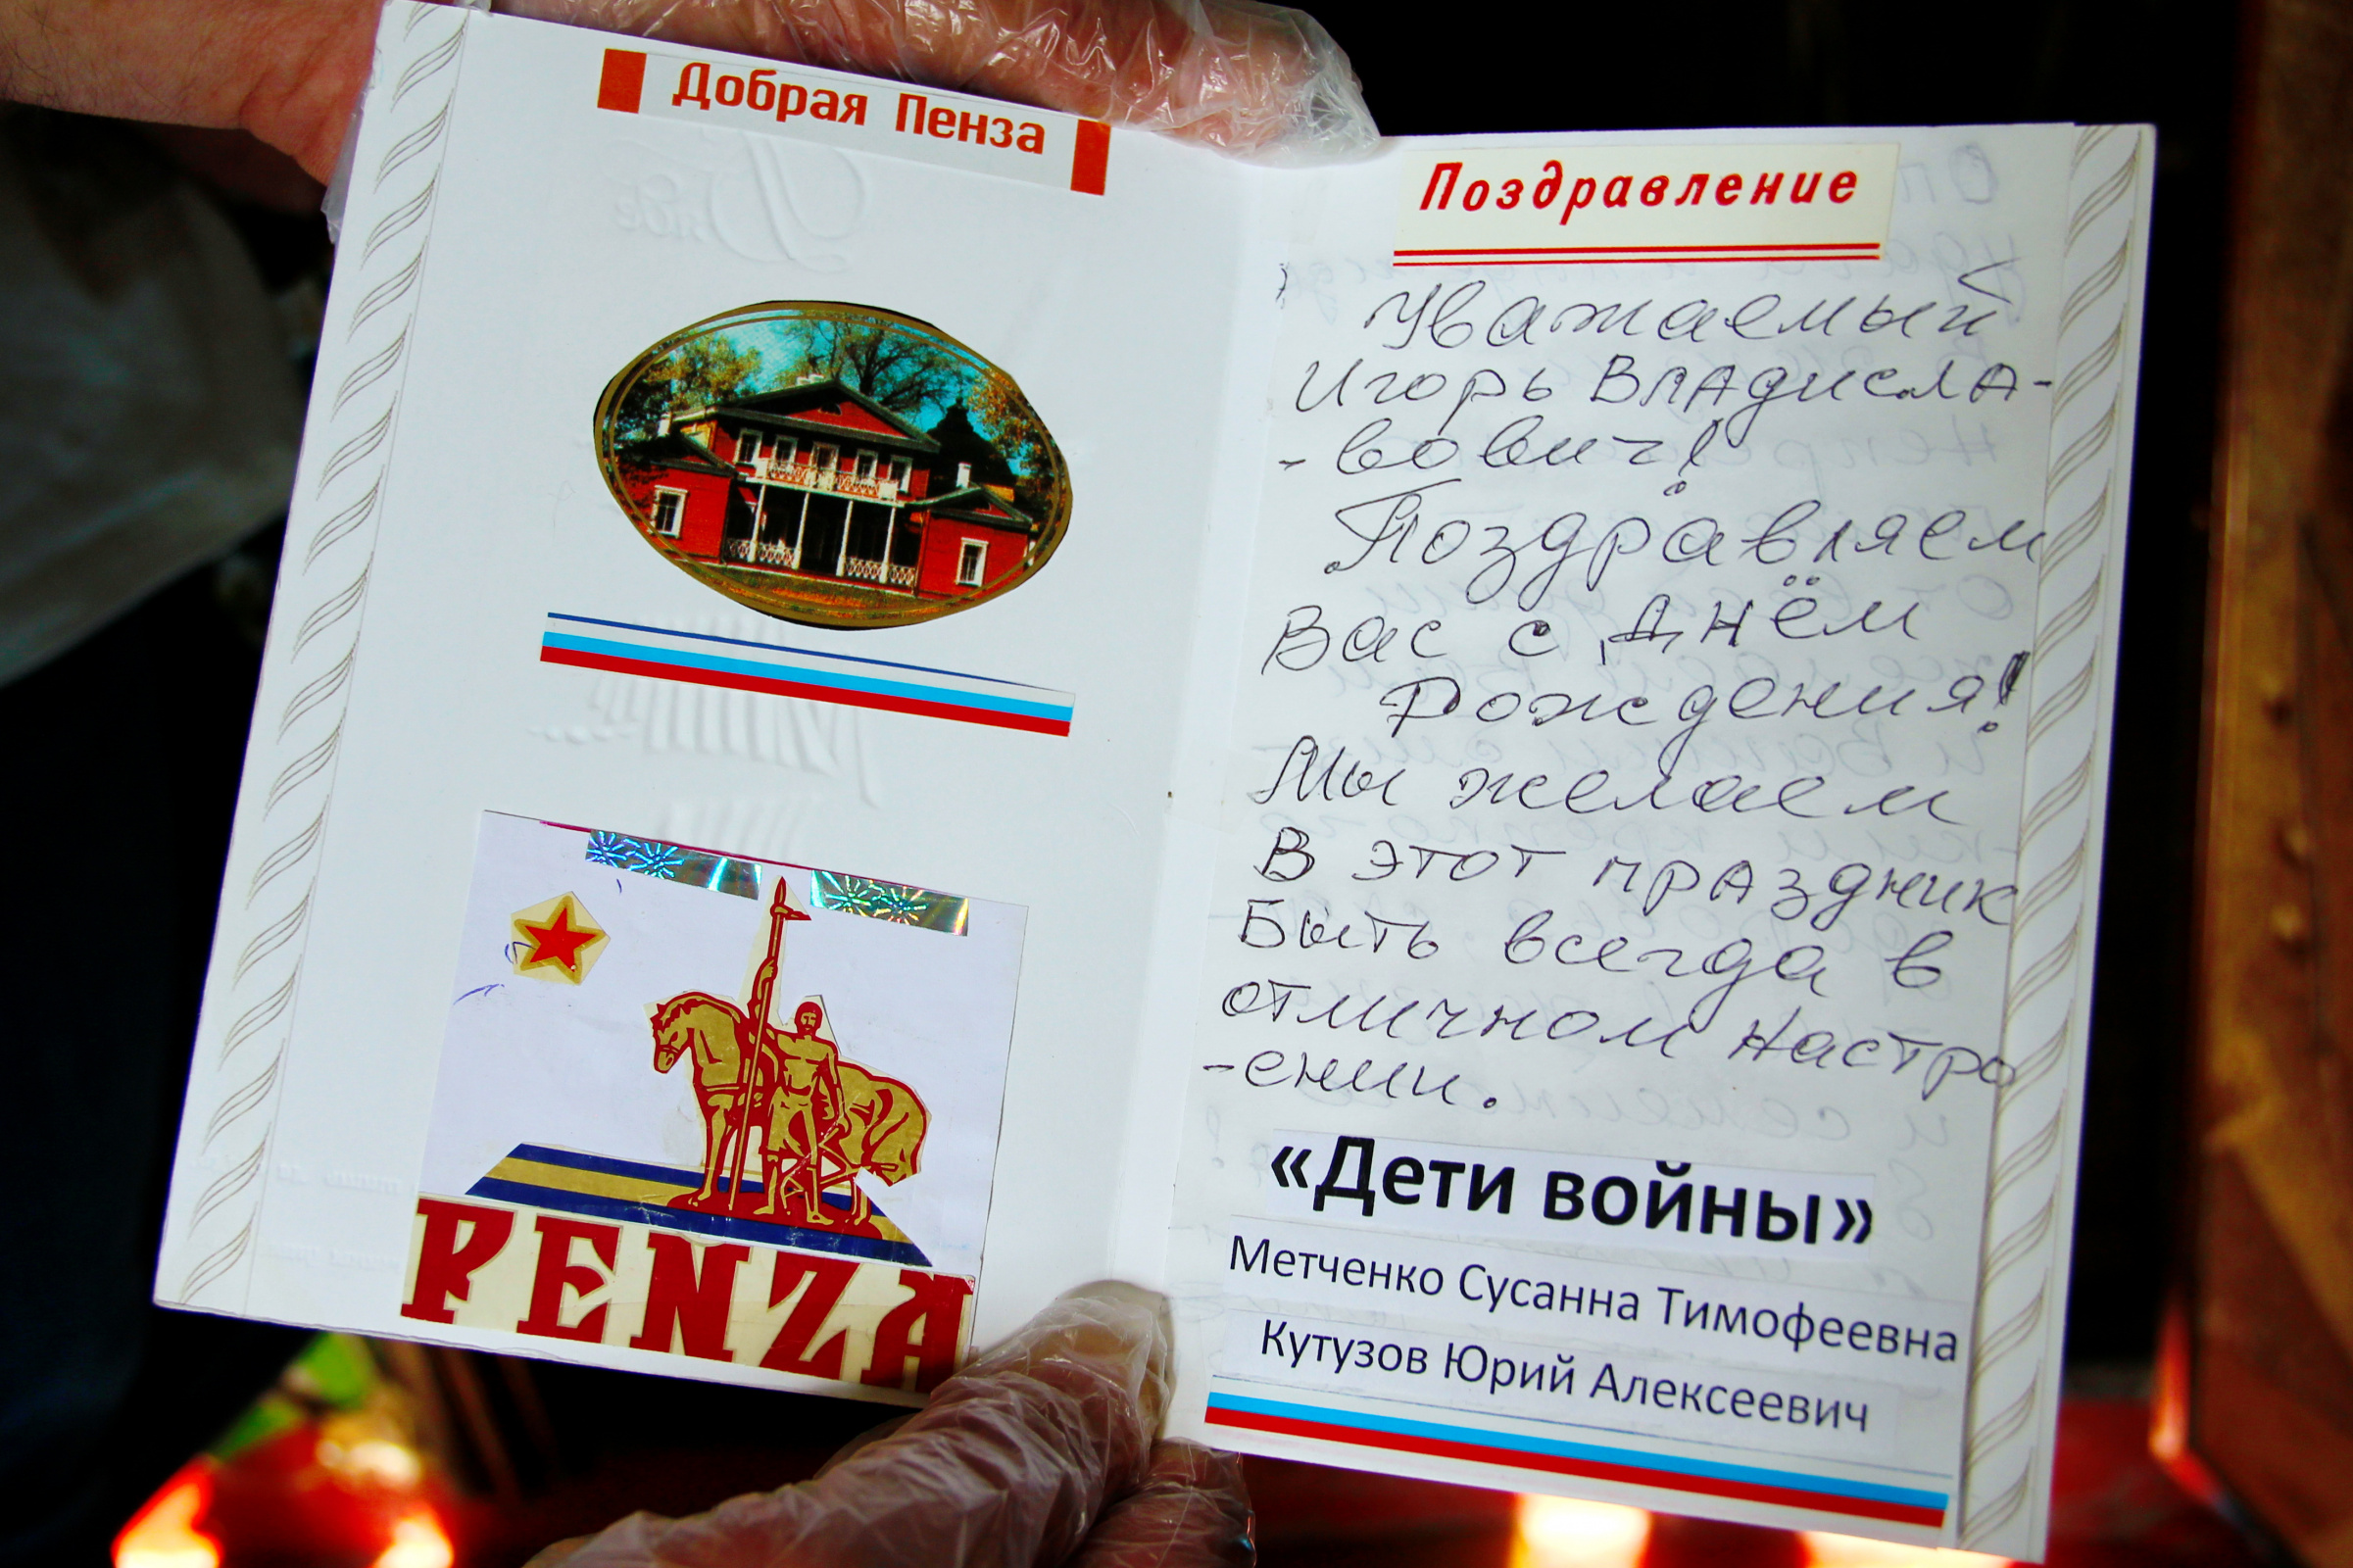 Добрая Пенза
PENZA
Поздравление
Уважаемый
Игорь Владисла-
-вович!
Поздравляем
Вас с Днём
Рождения!
Мы желаем
В этот праздник
Быть всегда в
отличном настро
-ении.
«Дети войны»
Метченко Сусанна Тимофеевна
Кутузов Юрий Алексеевич